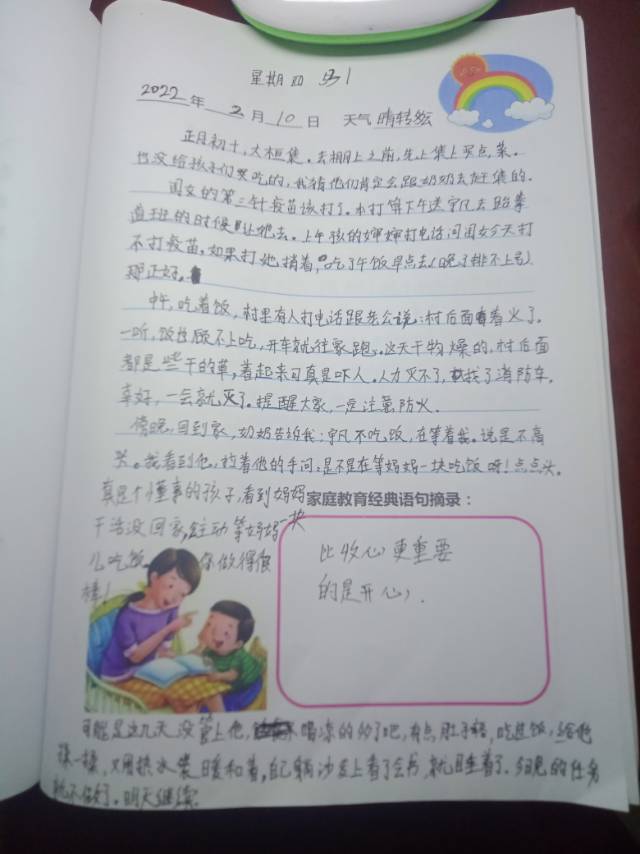 星期四
2022年 2月10日 天气 晴转多云
正月初十,大桓集。去棚上之前,先上集上买点菜。
也没给孩子们买吃的,我猜他们肯定会跟奶奶去赶集的。
闺女的第三针疫苗该打了。本打算下午送宇凡去跆拳
道班的时候让她去。上午孩的婶婶打电话问闺女今天打
不打疫苗,如果打她捎着,吃了午饭早点去(晚了排不上号)
那正好。
中午,吃着饭,村里有人打电话跟老公说:村后面着火了。
一听,饭也顾不上吃,开车就往家跑。这天干物燥的,村后面
都是些干的草,着起来可真是吓人。人力灭不了,找了消防车。
幸好,一会就灭了。提醒大家,一定注意防火。
傍晚,回到家,奶奶告诉我:宇凡不吃饭,在等着我。说是不高
兴。我看到他,拉着他的手问:是不是在等妈妈一块吃饭呀!点点头。
真是个懂事的孩子,看到妈妈
干活没回家,主动等妈妈一块
儿吃饭。你做得很
棒!
家庭教育经典语句摘录:
比收心更重要
的是开心,
可能是这几天没管上他,喝凉的多了吧,有点肚子疼,吃过饭,给他
揉一揉,又用热水袋暖和着,自己躺沙发上看了会书,就睡着了。今晚的任务
就不做了。明天继续